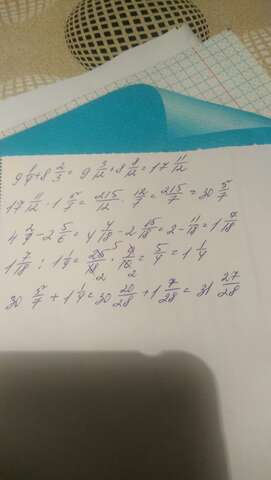 9 1/4 + 8 2/3 = 9 3/12 + 8 8/12 = 17 11/12
17 11/12 · 1 5/7 = 215/12 · 12/7 = 215/7 = 30 5/7
4 2/9 - 2 5/6 = 4 4/18 - 2 15/18 = 2 - 11/18 = 1 7/18
1 7/18 : 1 1/9 = 25/18 · 9/10 = 5/4 = 1 1/4
30 5/7 + 1 1/4 = 30 20/28 + 1 7/28 = 31 27/28